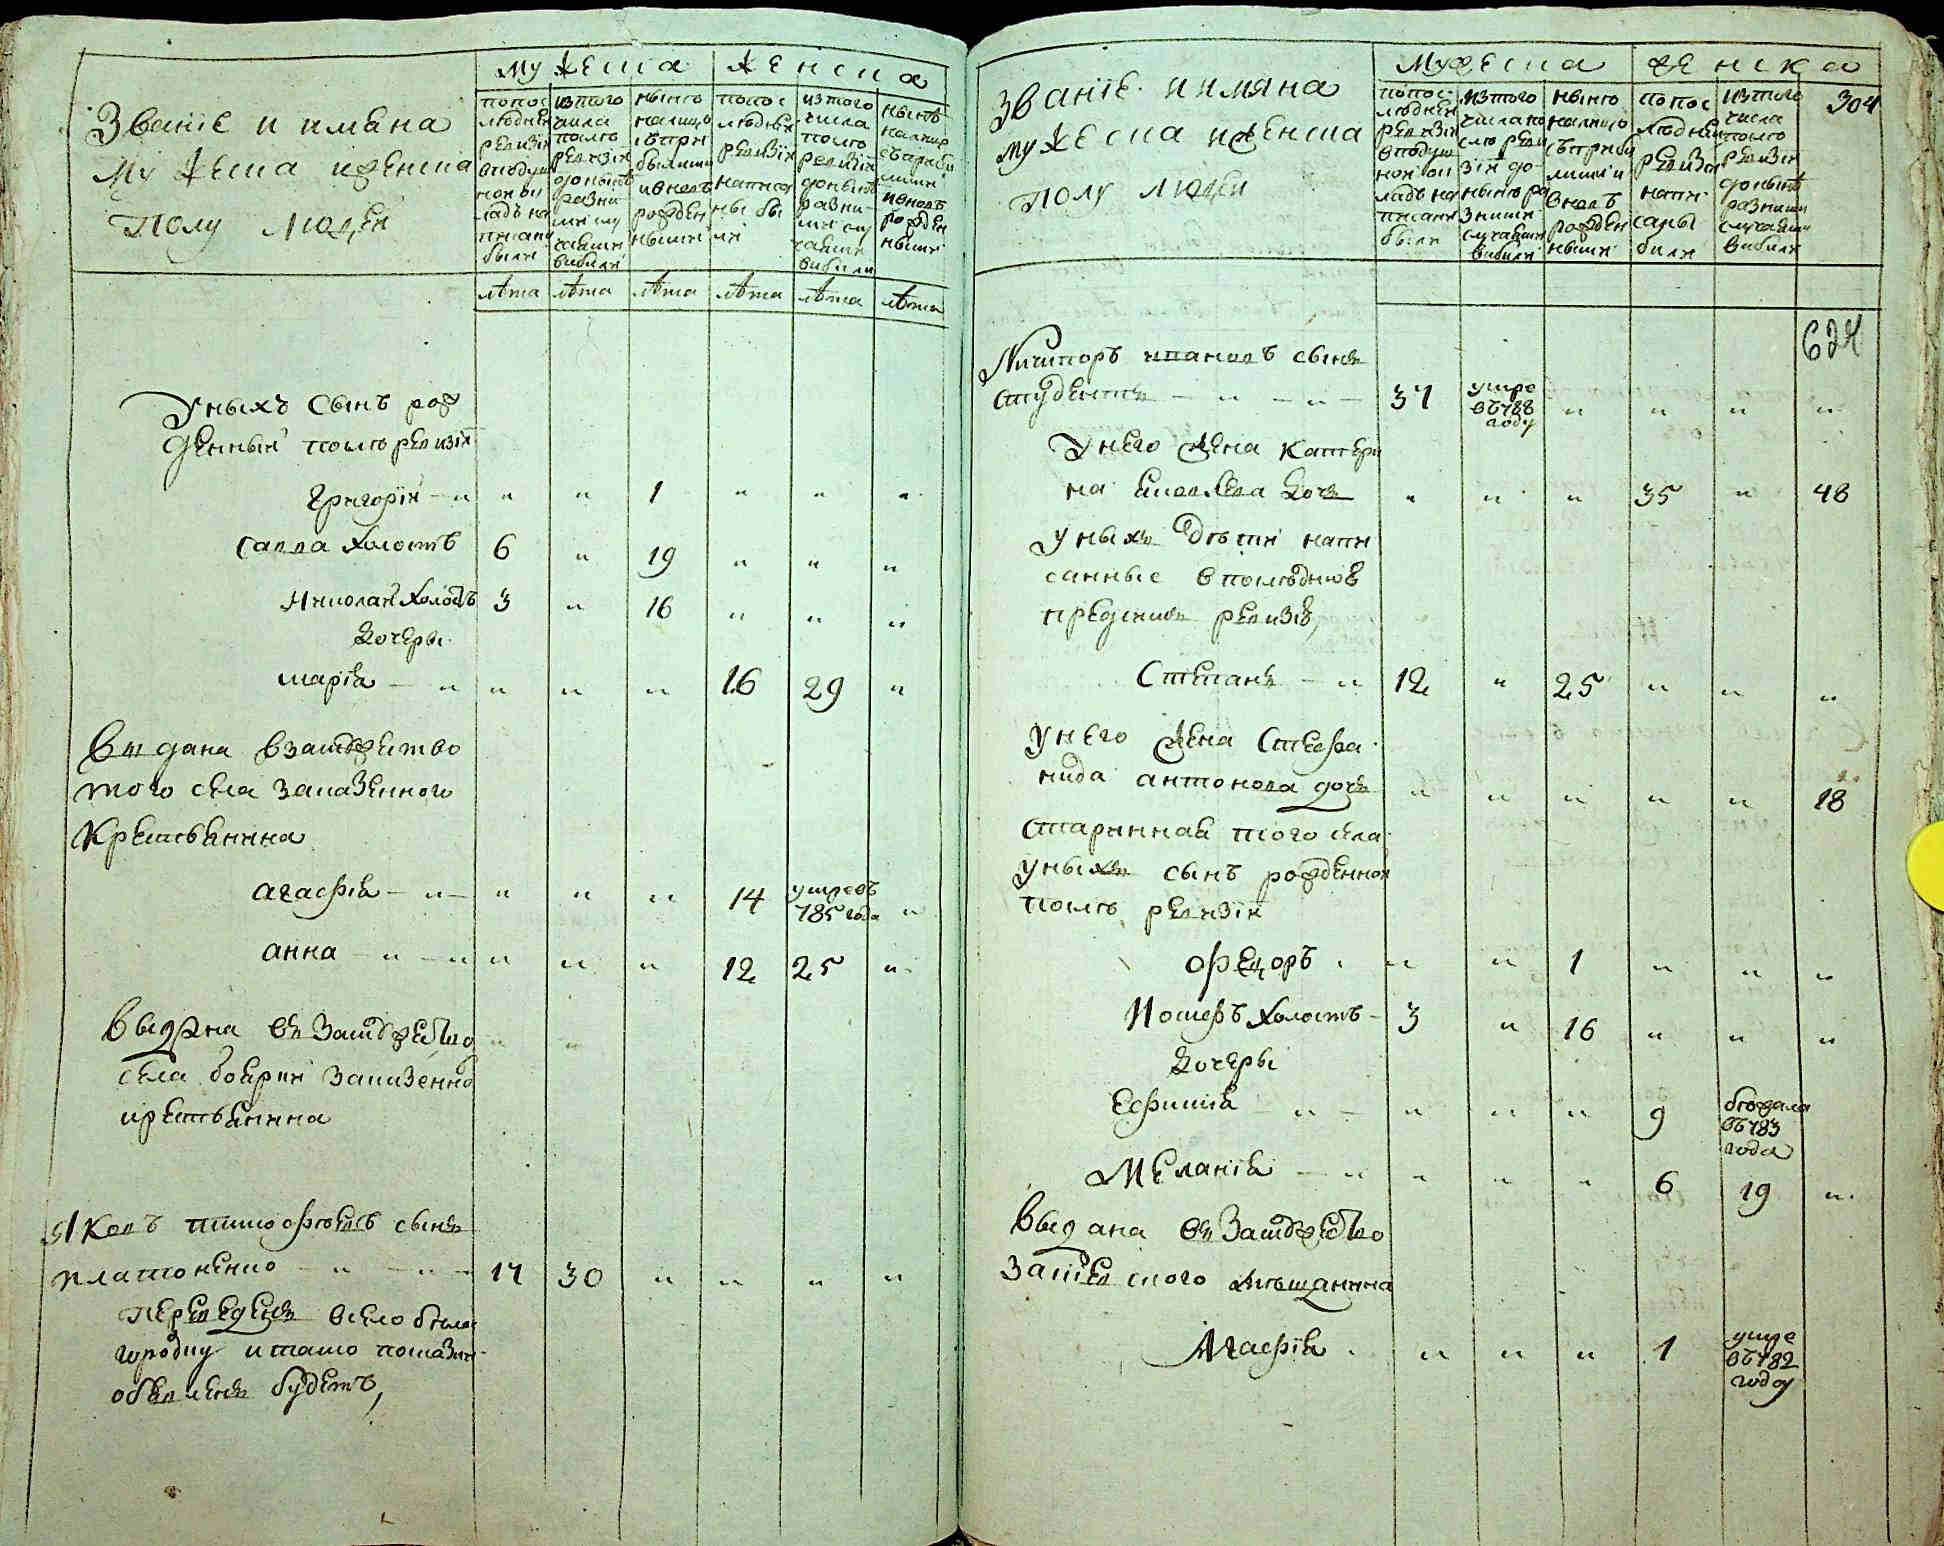 Званіе и имяна
мужеска и женска
полу людей
мужеска женска
попос людней ревизіи вподуш ной ок ладъ на писаны были
изтого числа после ревизіи донынѣ разны ми слу чаями выбыли
ныне налицо съ при былыми и вновь рожден ными
попос людней ревизіи написа ны бы ли
изтого числа после ревизіи донынѣ разны ми слу чаями выбыли
нынѣ налицо съ прибы лыми и вновь рожден ными
лѣта лѣта лѣта лѣта лѣта лѣта
Уныхъ сынъ рож
денный после ревизіи
Григорій - " " " 1 " " "
Савва холостъ 6 " 19 " " "
Николай холостъ 3 " 16 " " "
дочеры
Марія - " " " " 16 29 "
Выдана взамужество
того села казенного
крестьянина
Агафія - " - " " " 14 умре въ 785 года "
Анна - " - " " " " 12 25 "
Выдана въ замужество
села боярки казенно
крестьянина
Яковъ Тимофеевъ сынъ
Платоненко - " - " - 17 30 " " " "
переведенъ всело бело
городку и тамо показан
объявленъ будетъ,
Званіе и имяна
мужеска и женска
полу людей
мужеска женска
304
попос людней ревизіи вподуш ной ок ладъ на писаны были
изтого числа по сле реви зіи до ныне ра зными случаями выбыли
ныне налицо съ прибы лыми и вновь рожден ными
попос людней ревизіи напи саны были
изтого числа после ревизіи донынѣ разными случаями выбыли
624
Ничипоръ Ивановъ сынъ
Студентъ - " - " - 37 умре въ 788 году " " " "
Унего жена Катери
на Яковлева дочь " " " 35 " 48
Уныхъ дѣти напи
санные впоследней
предъ симъ ревизіе,
Степанъ - " 12 " 25 " " "
Унего жена Стефа
нида Антонова дочь " " " " " 18
старинная того села
Уныхъ сынъ рожденной
после ревизіи
Федоръ " " 1 " " "
Иосифъ холостъ - 3 " 16 " " "
дочеры
Ефимія - " - " " " 9 бежала въ 783 года
Меланія - " " " " 6 19 "
Выдана въ замужество
мещанина
Агафія " " " 1 умре въ 782 году